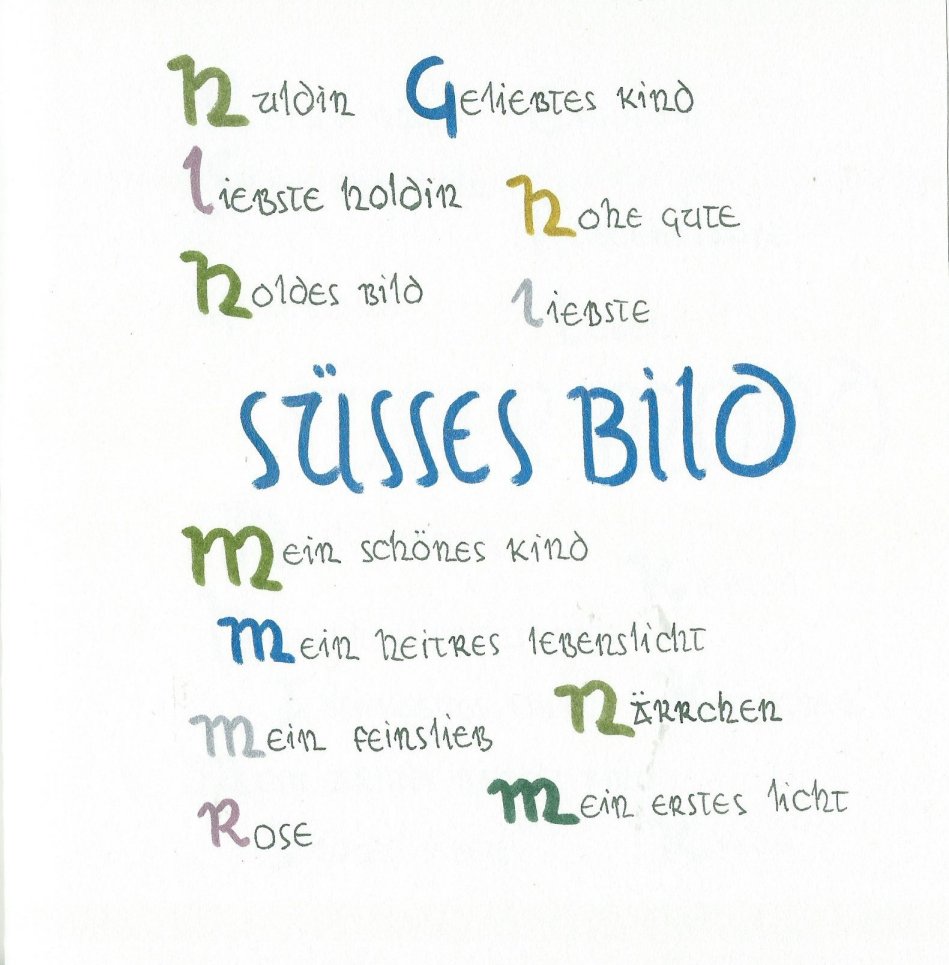 Huldin Geliebtes Kind
Liebste Holdin
Hohe Gute
Holdes Bild
Liebste
SÜSSES BILD
Mein schönes Kind
Mein heitres Lebenslicht
Närrchen
Mein Feinslieb
Mein erstes Licht
Rose